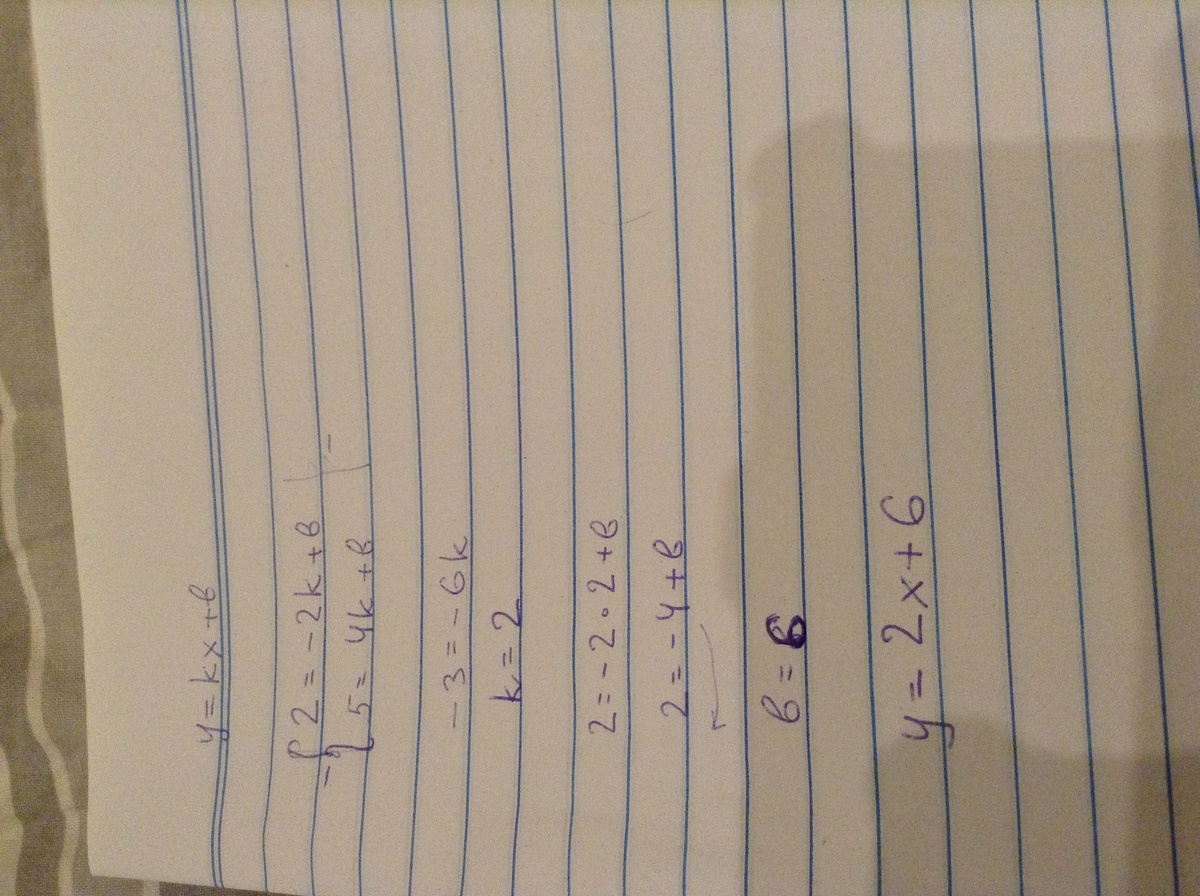 y=kx+в
- { 2=-2k+в | -
{ 5=4k+в
-3=-6k
k=2
2=-2·2+в
2=-4+в
в=6
y=2x+6